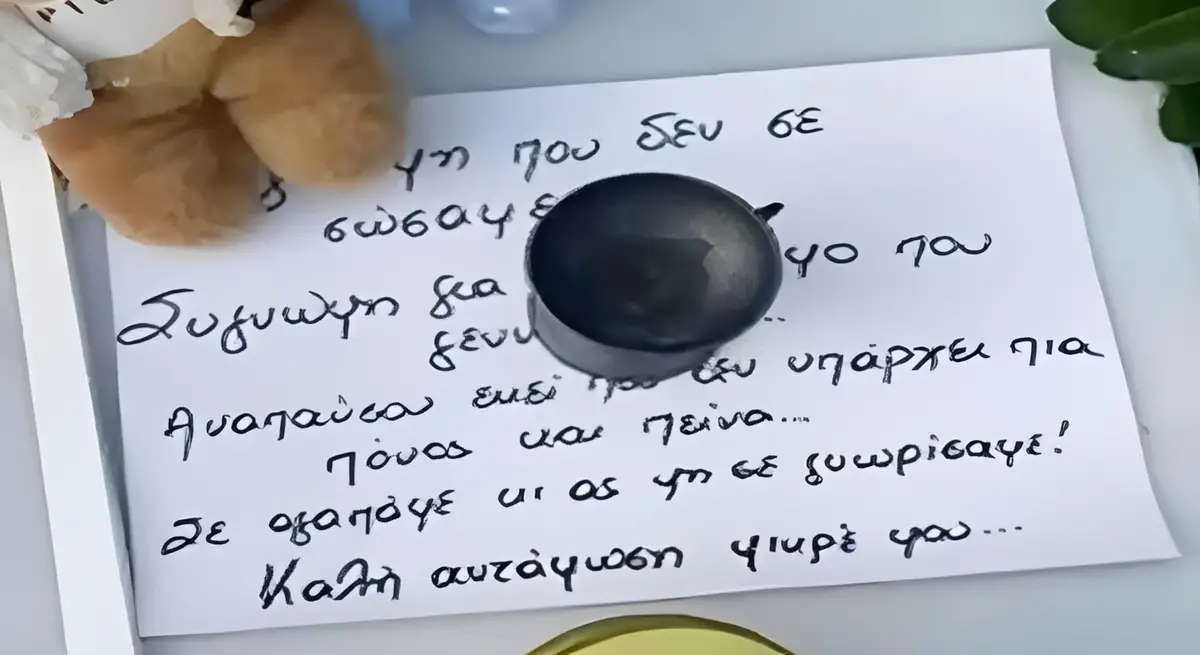 που δεν σε
σώσαμε
Συγνωμη για που
Αναπαύσου εκεί που δεν υπάρχει πια
πόνος και πείνα...
Σε αγαπάμε κι ας μη σε γνωρίσαμε!
Καλή αντάμωση μικρέ μου...